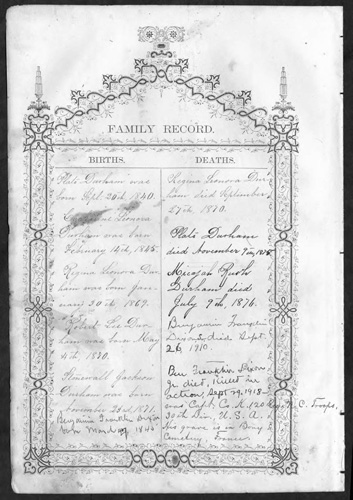 FAMILY RECORD.
BIRTHS.
Plato Durham was
born Sept. 20th 1840.
Leonora
Durham was born
February 14th, 1845.
Regina Leonora Dur-
ham was born Jan-
uary 30th 1869.
Robert Lee Dur-
ham was born May
4th, 1870.
Stonewall Jackson
Durham was born
November 23d 1871.
Benjamin Franklin
born March 1844
DEATHS.
Regina Leonora Dur-
ham died September
27th 1870.
Plato Durham
died November 9th, 1875
Micajah Rush
Durham died
July 9th, 1876.
Benjamin Franklin
Dixon, died Sept.
26, 1910.
Ben Franklin Dixon
Jr. died, Killed in
action, Sept 29, 1918
was Capt. Co. K. 120 Reg. N.C. Troops,
30th Div. U.S.A.
His grave is in Bony
Cemetery, France